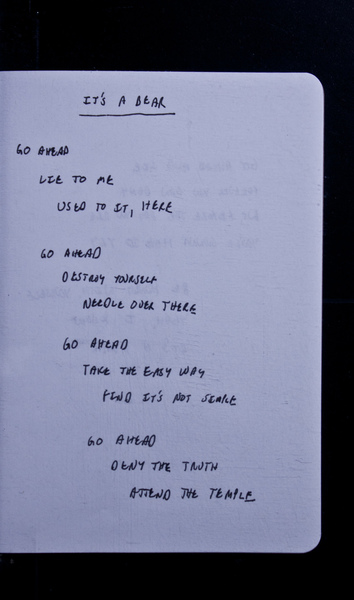 IT'S A BEAR
GO AHEAD
LIE TO ME
USED TO IT, HERE
GO AHEAD
DESTROY YOURSELF
NEEDLE OVER THERE
GO AHEAD
TAKE THE EASY WAY
FIND IT'S NOT SIMPLE
GO AHEAD
DENY THE TRUTH
ATTEND THE TEMPLE